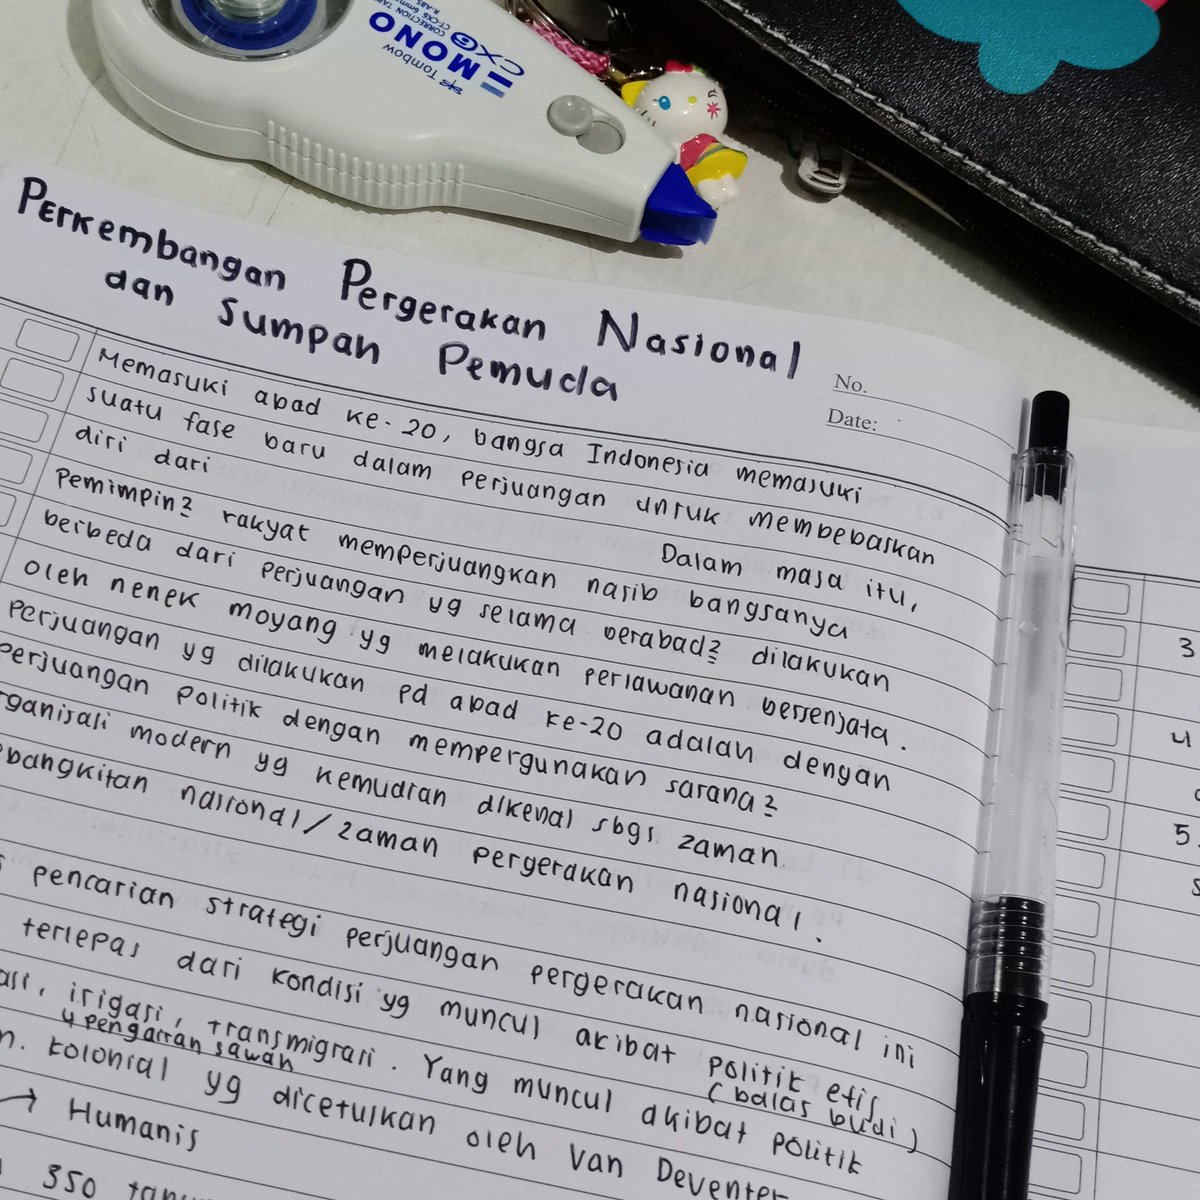 Tombow
MONO
CXG
CORRECTION TAPE
Perkembangan Pergerakan Nasional
dan Sumpah Pemuda
No.
Date:
Memasuki abad ke-20, bangsa Indonesia memasuki
suatu fase baru dalam perjuangan untuk membebaskan
diri dari Dalam masa itu,
Pemimpin2 rakyat memperjuangkan nasib bangsanya
berbeda dari perjuangan yg selama berabad2 dilakukan
oleh nenek moyang yg melakukan perlawanan bersenjata.
Perjuangan yg dilakukan pd abad ke-20 adalah dengan
perjuangan politik dengan mempergunakan sarana2
organisasi modern yg kemudian dikenal sbgi zaman
ebangkitan nasional/zaman pergerakan nasional.
pencarian strategi perjuangan pergerakan nasional ini
terlepas dari kondisi yg muncul akibat politik etis
(balas budi)
asi, irigasi, transmigrasi. Yang muncul akibat politik
↳ pengairan sawah
n. kolonial yg dicetuskan oleh Van Deventer
→ Humanis
350 tahun
3
4
5.